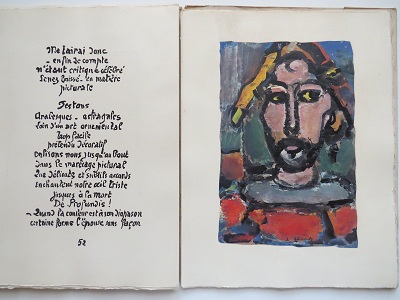 Me tairai donc
- en fin de compte
n'étant critique célébré
Senez laissé - la matière
picturale
Festons
Arabesques - astragales
loin d'un art ornemental
trop facile
prétendu décoratif
enlisons nous jusqu'au bout
dans le marécage pictural
Que délicats et subtils accords
enchantent notre œil triste
jusques à la mort
De Profundis !
- Quand la couleur est à son diapason
certaine forme l'épouse sans façon
52